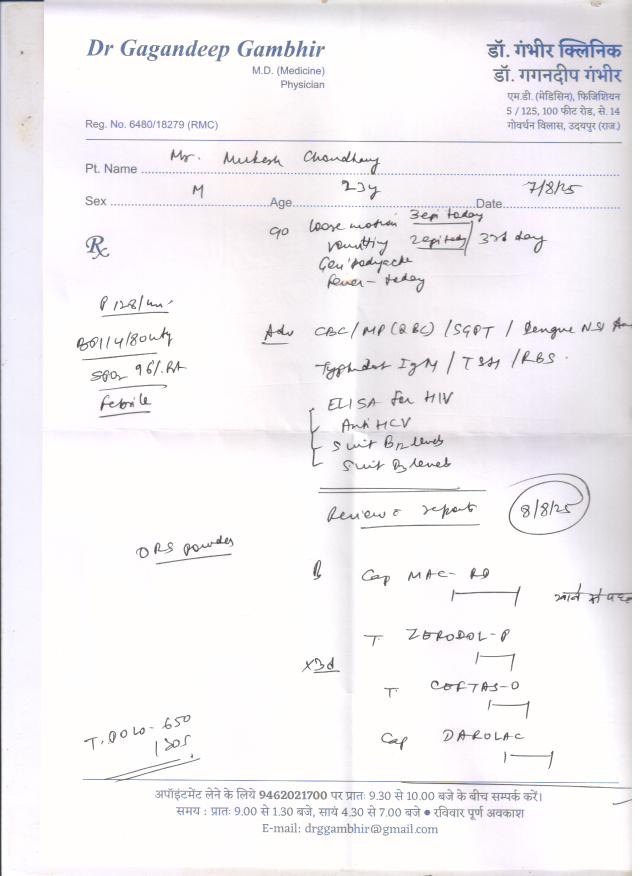 Dr Gagandeep Gambhir
M.D. (Medicine)
Physician
Reg. No. 6480/18279 (RMC)
डॉ. गंभीर क्लिनिक
डॉ. गगनदीप गंभीर
एम.डी. (मेडिसिन), फिजिशियन
5 / 125, 100 फीट रोड, से. 14
गोवर्धन विलास, उदयपुर (राज.)
Pt. Name Mr. Mukesh Choudhary
Sex M Age 23y Date 7/8/25
Rx
c/o loose motion 3 epi today
vomitting 2 epi today 3rd day
Gen bodyache
Fever - today
P 128/
BP 114/80
SPO2 96%. RA
Febrile
Adv CBC / MP (QBC) / SGPT / Dengue NS1
Typhidot IgM / TSH / RBS.
ELISA for HIV
Anti HCV
B12 levels
D3 levels
Review c reports 8/8/25
ORS powder
Cap MAC- RD
खाने से
T. ZERODOL-P
x3d
T. CEFTAS-O
Cap DAROLAC
T. DOLO-650
1 SOS
अपॉइंटमेंट लेने के लिये 9462021700 पर प्रातः 9.30 से 10.00 बजे के बीच सम्पर्क करें।
समय : प्रातः 9.00 से 1.30 बजे, सायं 4.30 से 7.00 बजे ● रविवार पूर्ण अवकाश
E-mail: drggambhir@gmail.com